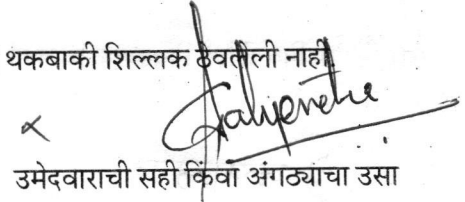 थकबाकी शिल्लक ठेवलेली नाही
उमेदवाराची सही किंवा अंगठ्याचा उसा